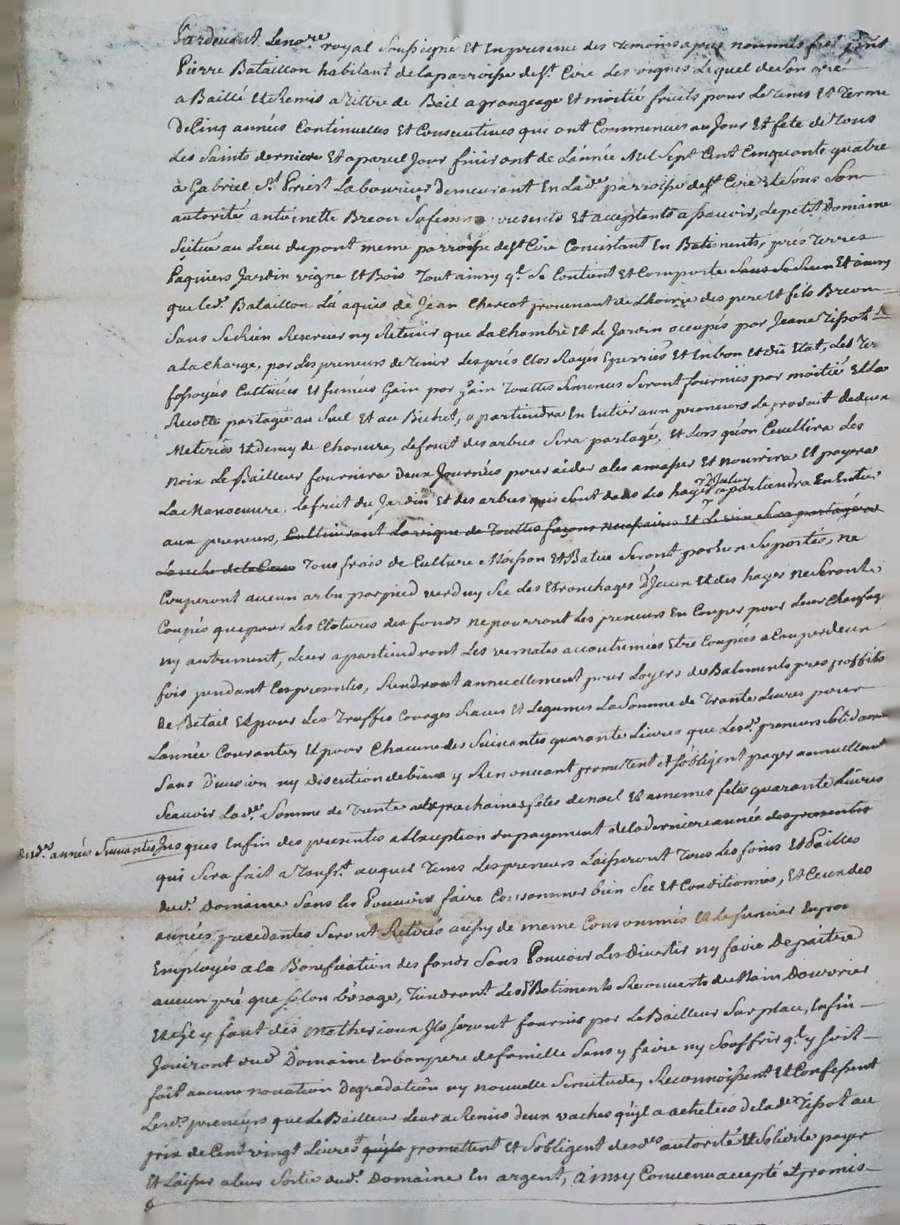 Pardevant Le no.re royal Soussigné Et En presence des temoins apres nommés fut présent
Pierre Bataillon habitant de la parroisse de S.t Cire Les vignes Lequel de Son gré
a Baillé Et Remis a titre de Bail a grangeage Et moitié fruits pour Le tems Et terme
De Cinq années Continuelles Et Consecutives qui ont Commencés au Jour Et fete de tous
Les Saints derniere Et a pareil Jour finiront de L'année Mil Sept Cent Cinquante quatre
à Gabriel S.t Priest Laboureur demeurant En Lad.e parroisse de S.t Cire Et de Sous Son
autorité antoinette Breon Sa femme presents Et acceptants a sçavoir, Le petit Domaine
Scitué au Lieu du pont meme parroisse de S.t Cire Consistant En Batiments, prés Terres
Paquiers Jardin vigne Et Bois Tout ainsy q.l Se Contient Et Comporte Sans Et ainsy
que Led. Bataillon L'a aquis de Jean Chercot provenant de L'hoirie des pere Et fils Breon
Sans Se Rien Reserver ny Retenir que La Chambre Et Le Jardin occupés par Jeane Tissot
a La Charge, par Les preneurs de Tenir Les prés Clos Rayés Et En bon Et dû Etat, Les Ter
fossoyés Cultivées Et fumées Gain par Gain Touttes Semences Seront fournies par moitié Et La
Recolte partagée au Suel Et au Bichet, apartiendra En Entier aux preneurs Le produit de deux
Meterées Et Demy de Chanvre, Le fruit des arbres Sera partagé, Et Lors qu'on Ceuillira des
noix Le Bailleur fournira deux Journées pour aider a Les amasser Et nourrira Et payera
La Manoeuvre, Le fruit du Jardin Et des arbres qui sont dans Les hayes apartiendra En Entier
aux preneurs, Cultiveront La vigne de Touttes façons necessaires Et Le vin Sera partagé
Tous frais de Culture Moisson Et Batue Seront par Eux Suportés, ne
Couperont aucun arbre par pied verd ny Sec Les Etronchages D'Iceux Et des hayes ne Seront
Coupés que pour Les Clotures des fonds ne pourront Les preneurs En Couper pour Leur Chaufage
ny autrement, Leur apartiendront Les vernates accoutumées Etre Coupées a Couper d'une
fois pendant Ces presentes, Rendront annuellement pour Loyers des Batiments
de Betail Et pour Les Truffes Courges Raves Et Legumes La Somme de Trente Livres pour
L'année Courante, Et pour Chacune des Suivantes quarante Livres que Lesd. preneurs Solidaire
Sans Division ny Discution de biens y Renonçant promettent Et S'obligent payer annuellement
Sçavoir Lad.e Somme de Trente aux prochaines fêtes de noel Et a memes fêtes quarante Livres
desd.s années Suivantes Jusques Enfin des presentes a L'Exception du payement de La derniere année des presentes
qui Sera fait a Touss.t auquel Tems Les preneurs Laisseront Tous Les foins Et Pailles
dud. Domaine Sans Les Pouvoir faire Consommer bien Sec Et Conditionnés, Et Ceux des
années precedantes Seront Retirés aussy de meme Consommés Et Le fumier
Employés a La Bonification des fonds Sans Pouvoir Les Divertir ny faire De paitre
aucun pré que Selon L'usage, Tiendront Les Batiments Recouverts de Main D'ouvrier
Et S'il y faut des Matheriaux Ils Seront fournis par Le Bailleur Sur place, Enfin
Jouiront dud. Domaine En bon pere de famille Sans y faire ny Souffrir q.l y Soit
fait aucune novation Degradation ny nouvelle Servitude, Reconnoissent Et Confessent
Lesd. preneurs que Le Bailleur Leur a Remis deux vaches qu'il a achetées de La d.e Tissot au
prix de Cent vingt Livres qu'ils promettent Et S'obligent desd.es autorité Et Solidité payer
Et Laisser a Leur Sortie dud. Domaine En argent, ainsy Convenu accepté Et promis